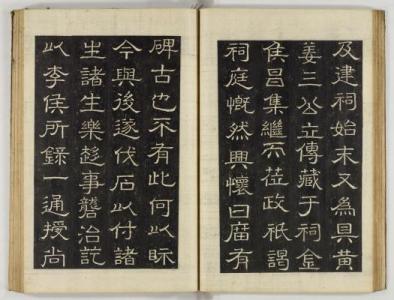 及建祠始末又為具黄
姜三公立傳藏于祠金
侯昌集繼而莅政祇謁
祠庭慨然興懷曰庿有
碑古也不有此何以眎
今與後遂伐石以付諸
生諸生樂趍事礱治訖
以李侯所錄一通授尚